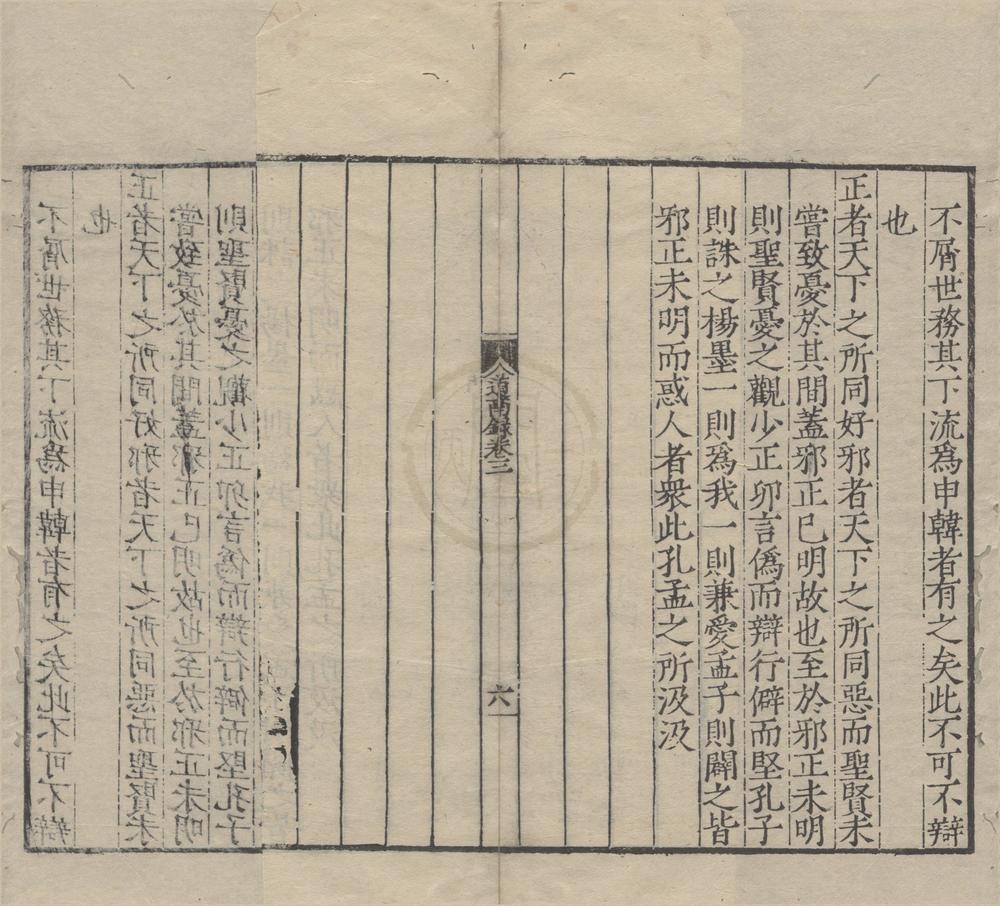 不屑世務其下流為申韓者有之矣此不可不辯
也
正者天下之所同好邪者天下之所同惡而聖賢未
嘗致憂於其間蓋邪正已明故也至於邪正未明
則聖賢憂之觀少正卯言偽而辯行僻而堅孔子
則誅之楊墨一則為我一則兼愛孟子則闢之皆
邪正未明而惑人者衆此孔孟之所汲汲
道南錄卷三
六